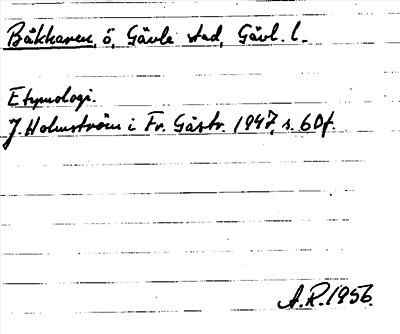 Båkharen, ö, Gävle stad, Gävl. l.
Etymologi.
J. Holmström i Fr. Gästr. 1947, s. 60f.
A.R. 1956.